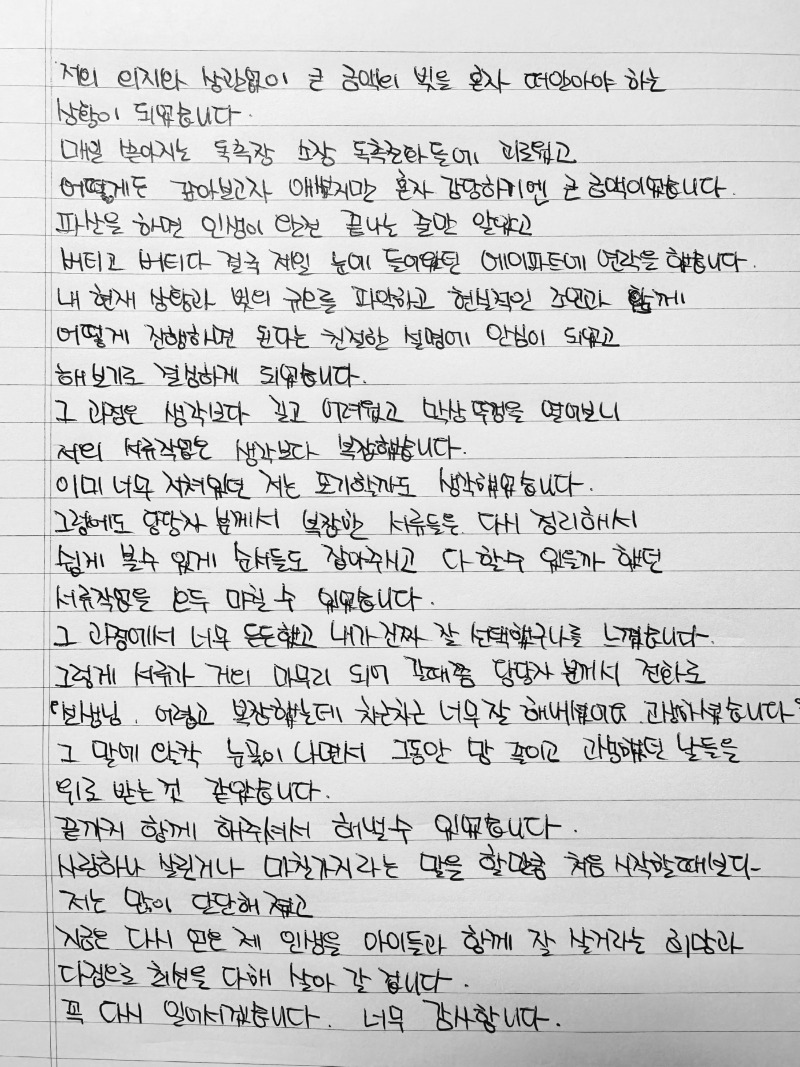 저의 의지와 상관없이 큰 금액의 빚을 혼자 떠안아야 하는
상황이 되었습니다.
매일 쏟아지는 독촉장 소장 독촉전화들에 괴로웠고
어떻게든 갚아보고자 애썼지만 혼자 감당하기엔 큰 금액이었습니다.
파산을 하면 인생이 완전 끝나는 줄만 알았고
버티고 버티다 결국 제일 눈에 들어왔던 에이파트에 연락을 했습니다.
내 현재 상황과 빚의 규모를 파악하고 현실적인 조언과 함께
어떻게 진행하면 된다는 친절한 설명에 안심이 되었고
해보기로 결심하게 되었습니다.
그 과정은 생각보다 길고 어려웠고 막상 뚜껑을 열어보니
저의 서류작업은 생각보다 복잡했습니다.
이미 너무 지쳐있던 저는 포기할까도 생각했었습니다.
그럼에도 담당자 분께서 복잡한 서류들을 다시 정리해서
쉽게 볼수 있게 순서들도 잡아주시고 다 할수 있을까 했던
서류작업을 모두 마칠 수 있었습니다.
그 과정에서 너무 든든했고 내가 진짜 잘 선택했구나를 느꼈습니다.
그렇게 서류가 거의 마무리 되어 갈때쯤 담당자 분께서 전화로
"반생님. 어렵고 복잡했는데 차근차근 너무 잘 해내셨어요. 고생하셨습니다"
그 말에 왈칵 눈물이 나면서 그동안 맘 졸이고 고생했던 날들을
위로 받는 것 같았습니다.
끝까지 함께 해주셔서 해낼수 있었습니다.
사람하나 살린거나 마찬가지라는 말을 할만큼 처음 시작할때보다
저는 많이 단단해 졌고
지금은 다시 얻은 제 인생을 아이들과 함께 잘 살거라는 희망과
다짐으로 최선을 다해 살아 갈 겁니다.
꼭 다시 일어서겠습니다. 너무 감사합니다.